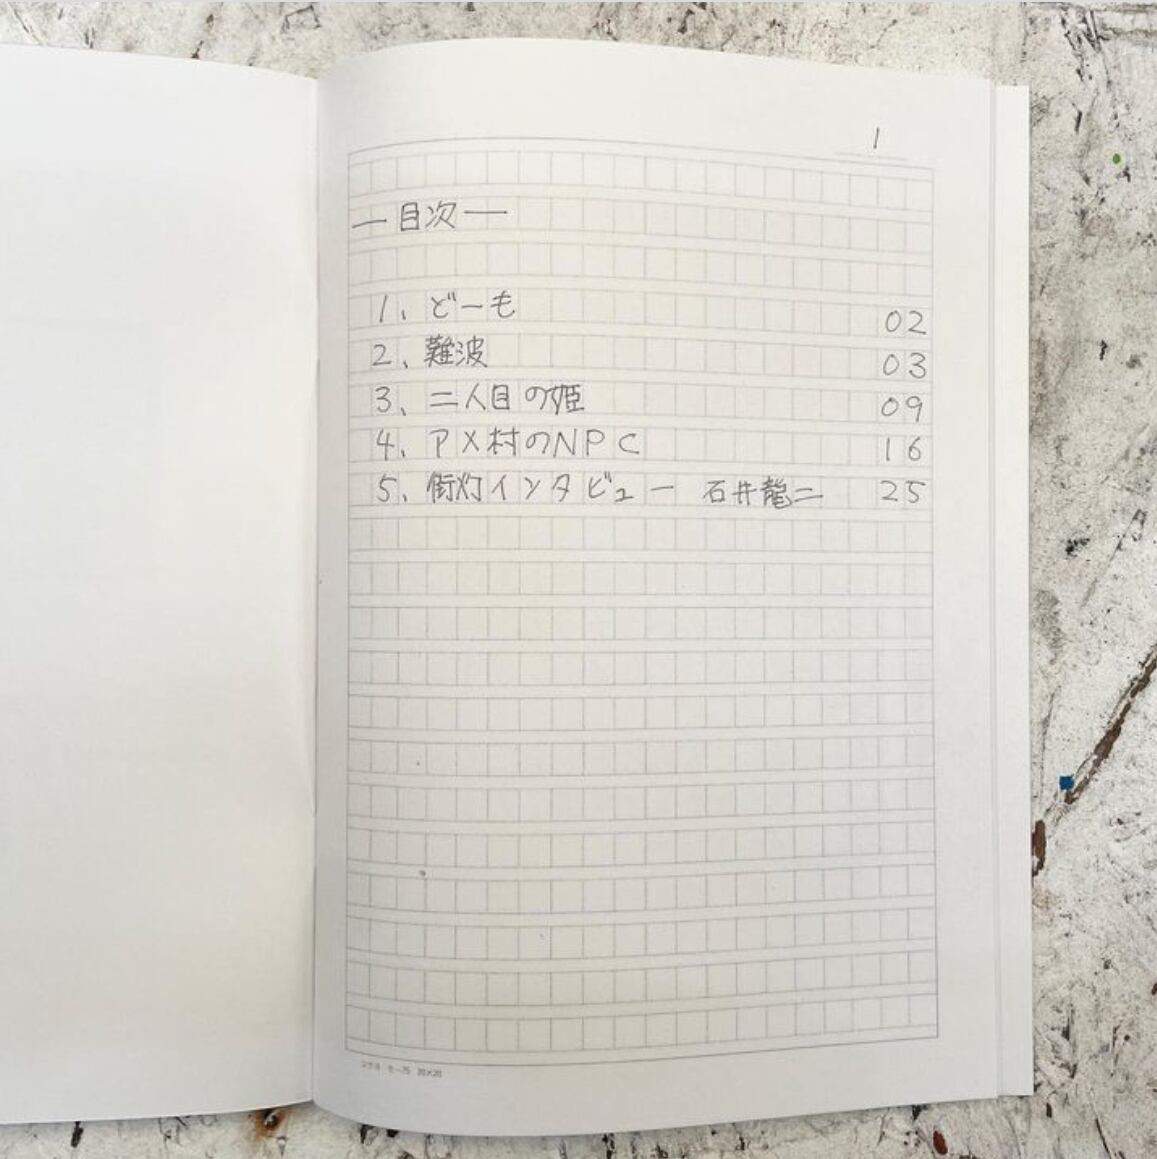 1
— 目次 —
1、どーも 02
2、難波 03
3、二人目の姫 09
4、アメ村のNPC 16
5、街灯インタビュー 石井龍二 25
コクヨ ケ-75 20×20